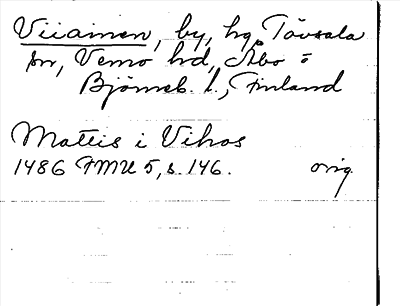 Viiainen, by, hg, Tövsala
sn, Vemo hd, Åbo o
Björneb. l., Finland
Mattis i Vihos
1486 FMU 5, s. 146. orig.